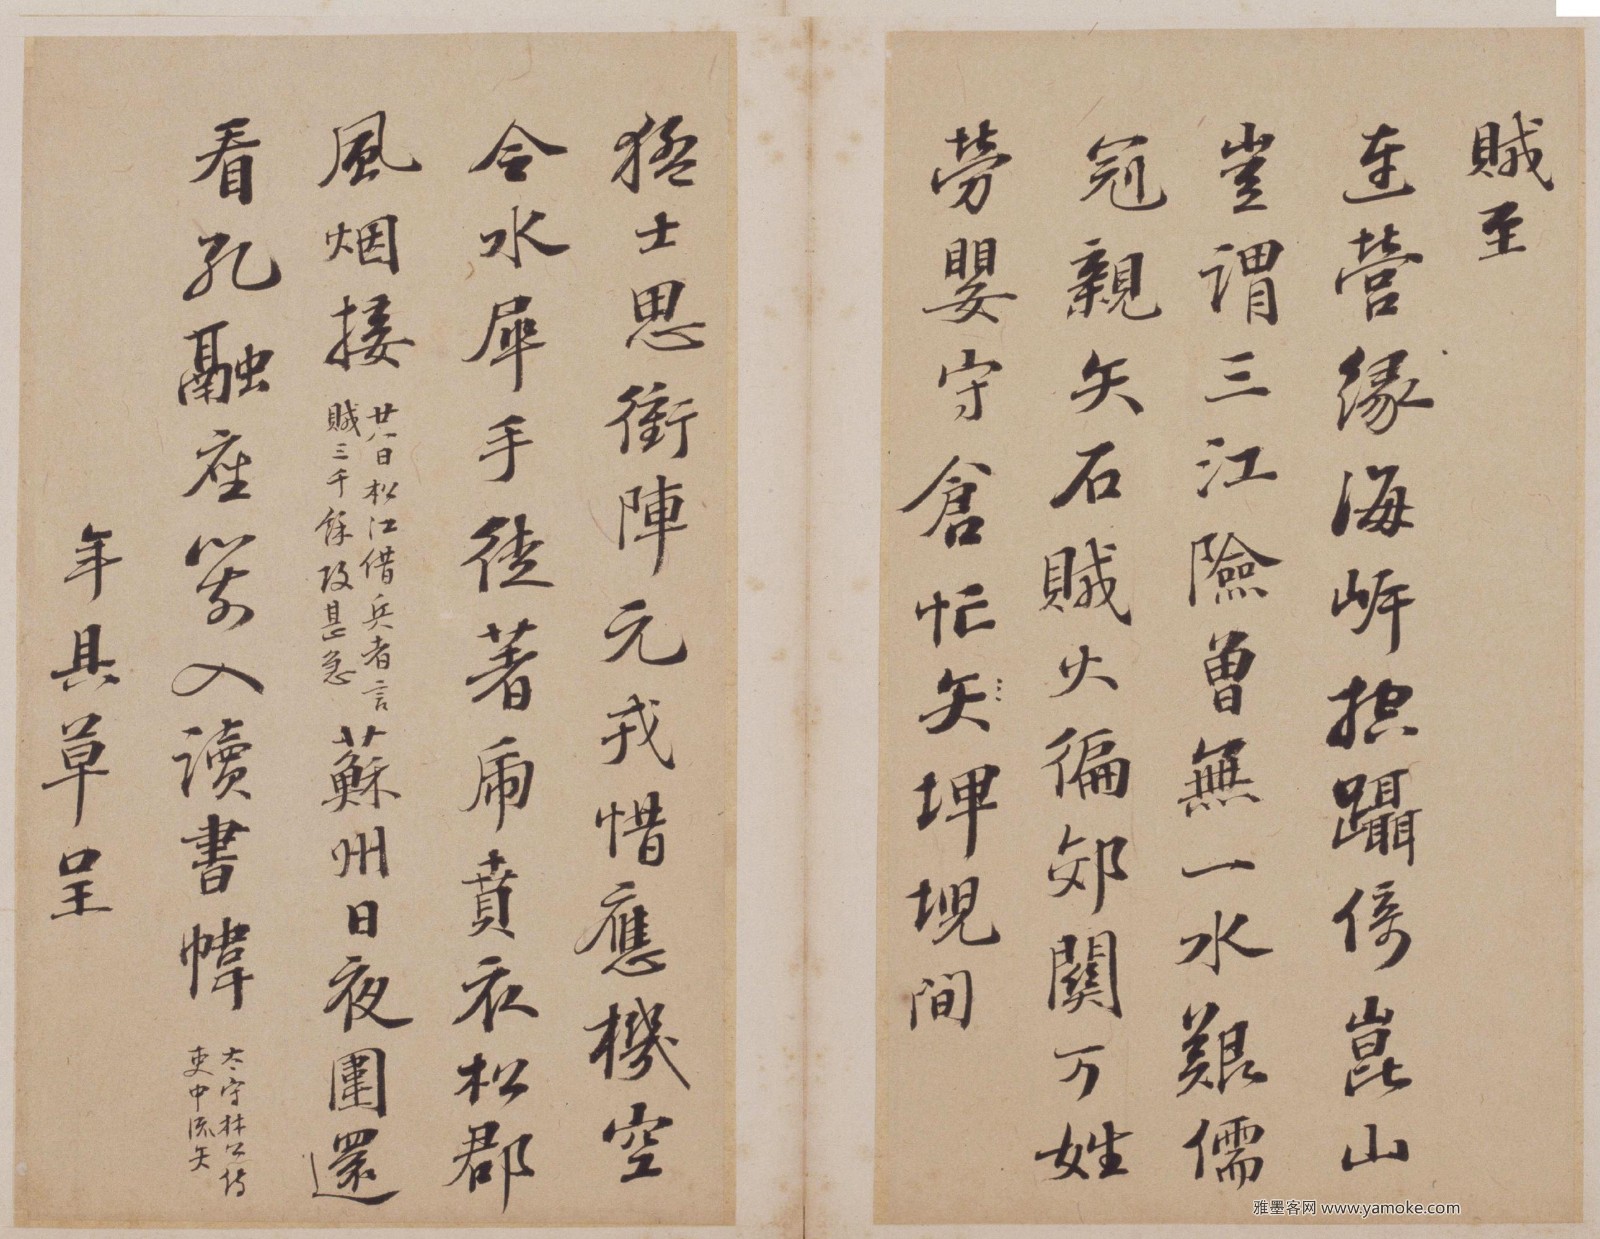 賊至
連營緣海岍控躡倚崑山
豈謂三江險曾無一水艱儒
冠親矢石賊火徧郊關万姓
勞嬰守倉忙矢埤堄間
猛士思衝陣元戎惜應機空
令水犀手徒著虎賁衣松郡
風烟接
廿八日松江借兵者言
賊三千餘攻甚急
蘇州日夜圍還
看孔融座箭入讀書幃
太守林公侍
吏中流矢
年具草呈
雅墨客网 www.yamoke.com